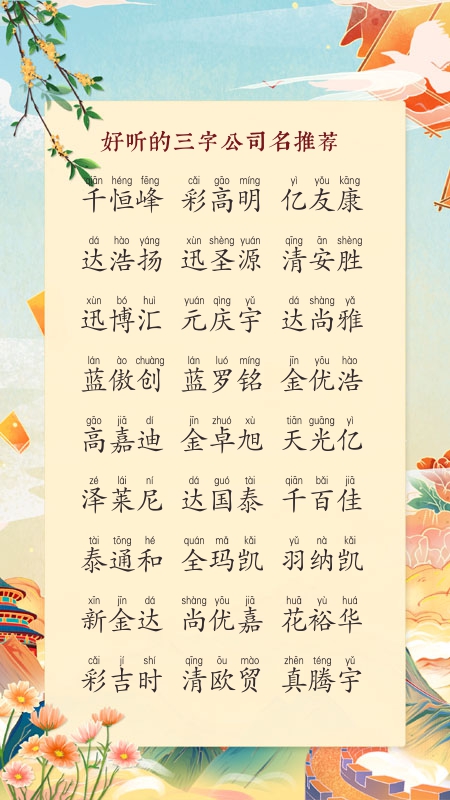 好听的三字公司名推荐
qiān héng fēng cǎi gāo míng yì yǒu kāng
千恒峰 彩高明 亿友康
dá hào yáng xùn shèng yuán qīng ān shèng
达浩扬 迅圣源 清安胜
xùn bó huì yuán qìng yǔ dá shàng yǎ
迅博汇 元庆宇 达尚雅
lán ào chuàng lán luó míng jīn yōu hào
蓝傲创 蓝罗铭 金优浩
gāo jiā dí jīn zhuó xù tiān guāng yì
高嘉迪 金卓旭 天光亿
zé lái ní dá guó tài qiān bǎi jiā
泽莱尼 达国泰 千百佳
tài tōng hé quán mǎ kǎi yǔ nà kǎi
泰通和 全玛凯 羽纳凯
xīn jīn dá shàng yōu jiā huā yù huá
新金达 尚优嘉 花裕华
cǎi jí shí qīng ōu mào zhēn téng yǔ
彩吉时 清欧贸 真腾宇